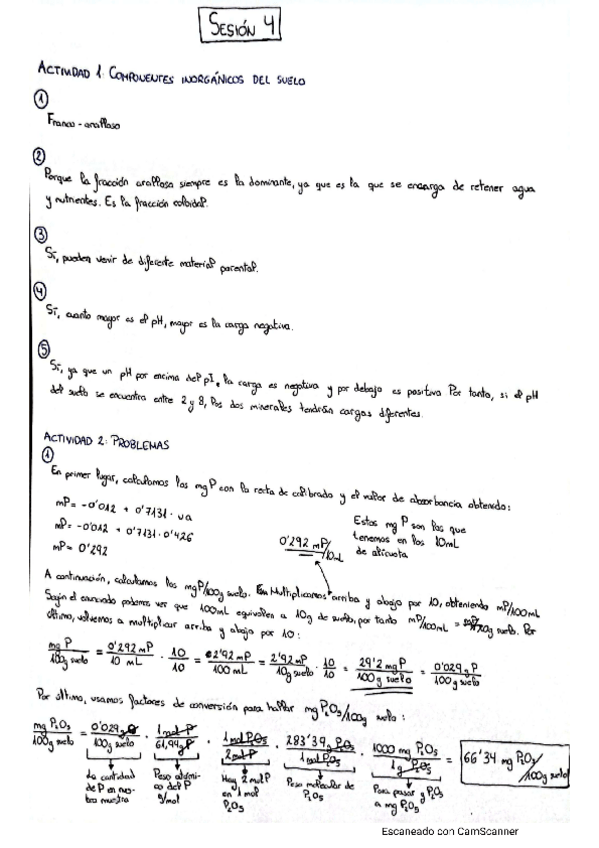 SESIÓN 4
ACTIVIDAD 1: COMPONENTES INORGÁNICOS DEL SUELO
1
Franco-arcilloso
2
Porque la fracción arcillosa siempre es la dominante, ya que es la que se encarga de retener agua
y nutrientes. Es la fracción coloidal.
3
Sí, pueden venir de diferente material parental.
4
Sí, cuanto mayor es el pH, mayor es la carga negativa.
5
Sí, ya que un pH por encima del pI, la carga es negativa y por debajo es positiva. Por tanto, si el pH
del suelo se encuentra entre 2 y 8, los dos minerales tendrán cargas diferentes.
ACTIVIDAD 2: PROBLEMAS
1
En primer lugar, calculamos los mg P con la recta de calibrado y el valor de absorbancia obtenido:
mP = -0'012 + 0'7131 · va
mP = -0'012 + 0'7131 · 0'426
mP = 0'292
0'292 mP/10mL
Estos mg P son los que
tenemos en los 10mL
de alícuota
A continuación, calculamos los mgP/100g suelo. Multiplicamos arriba y abajo por 10, obteniendo mP/100mL
Según el enunciado podemos ver que 100mL equivalen a 10g de suelo, por tanto mP/100mL = mP/10g suelo. Por
último, volvemos a multiplicar arriba y abajo por 10:
mg P/100g suelo = 0'292 mP/10 mL · 10/10 = 2'92 mP/100 mL = 2'92 mP/10g suelo · 10/10 = 29'2 mg P/100 g suelo = 0'029 g P/100 g suelo
Por último, usamos factores de conversión para hallar mg P₂O₅/100g suelo:
mg P₂O₅/100g suelo = 0'029 g P/100g suelo · 1 mol P/61,94g P · 1 mol P₂O₅/2 mol P · 283'39 g P₂O₅/1 mol P₂O₅ · 1000 mg P₂O₅/1 g P₂O₅ = 66'34 mg P₂O₅/100g suelo
La cantidad
de P en nues-
tra muestra
Peso atómi-
co del P
g/mol
Hay 2 mol P
en 1 mol
P₂O₅
Peso molecular de
P₂O₅
Para pasar g P₂O₅
a mg P₂O₅
Escaneado con CamScanner